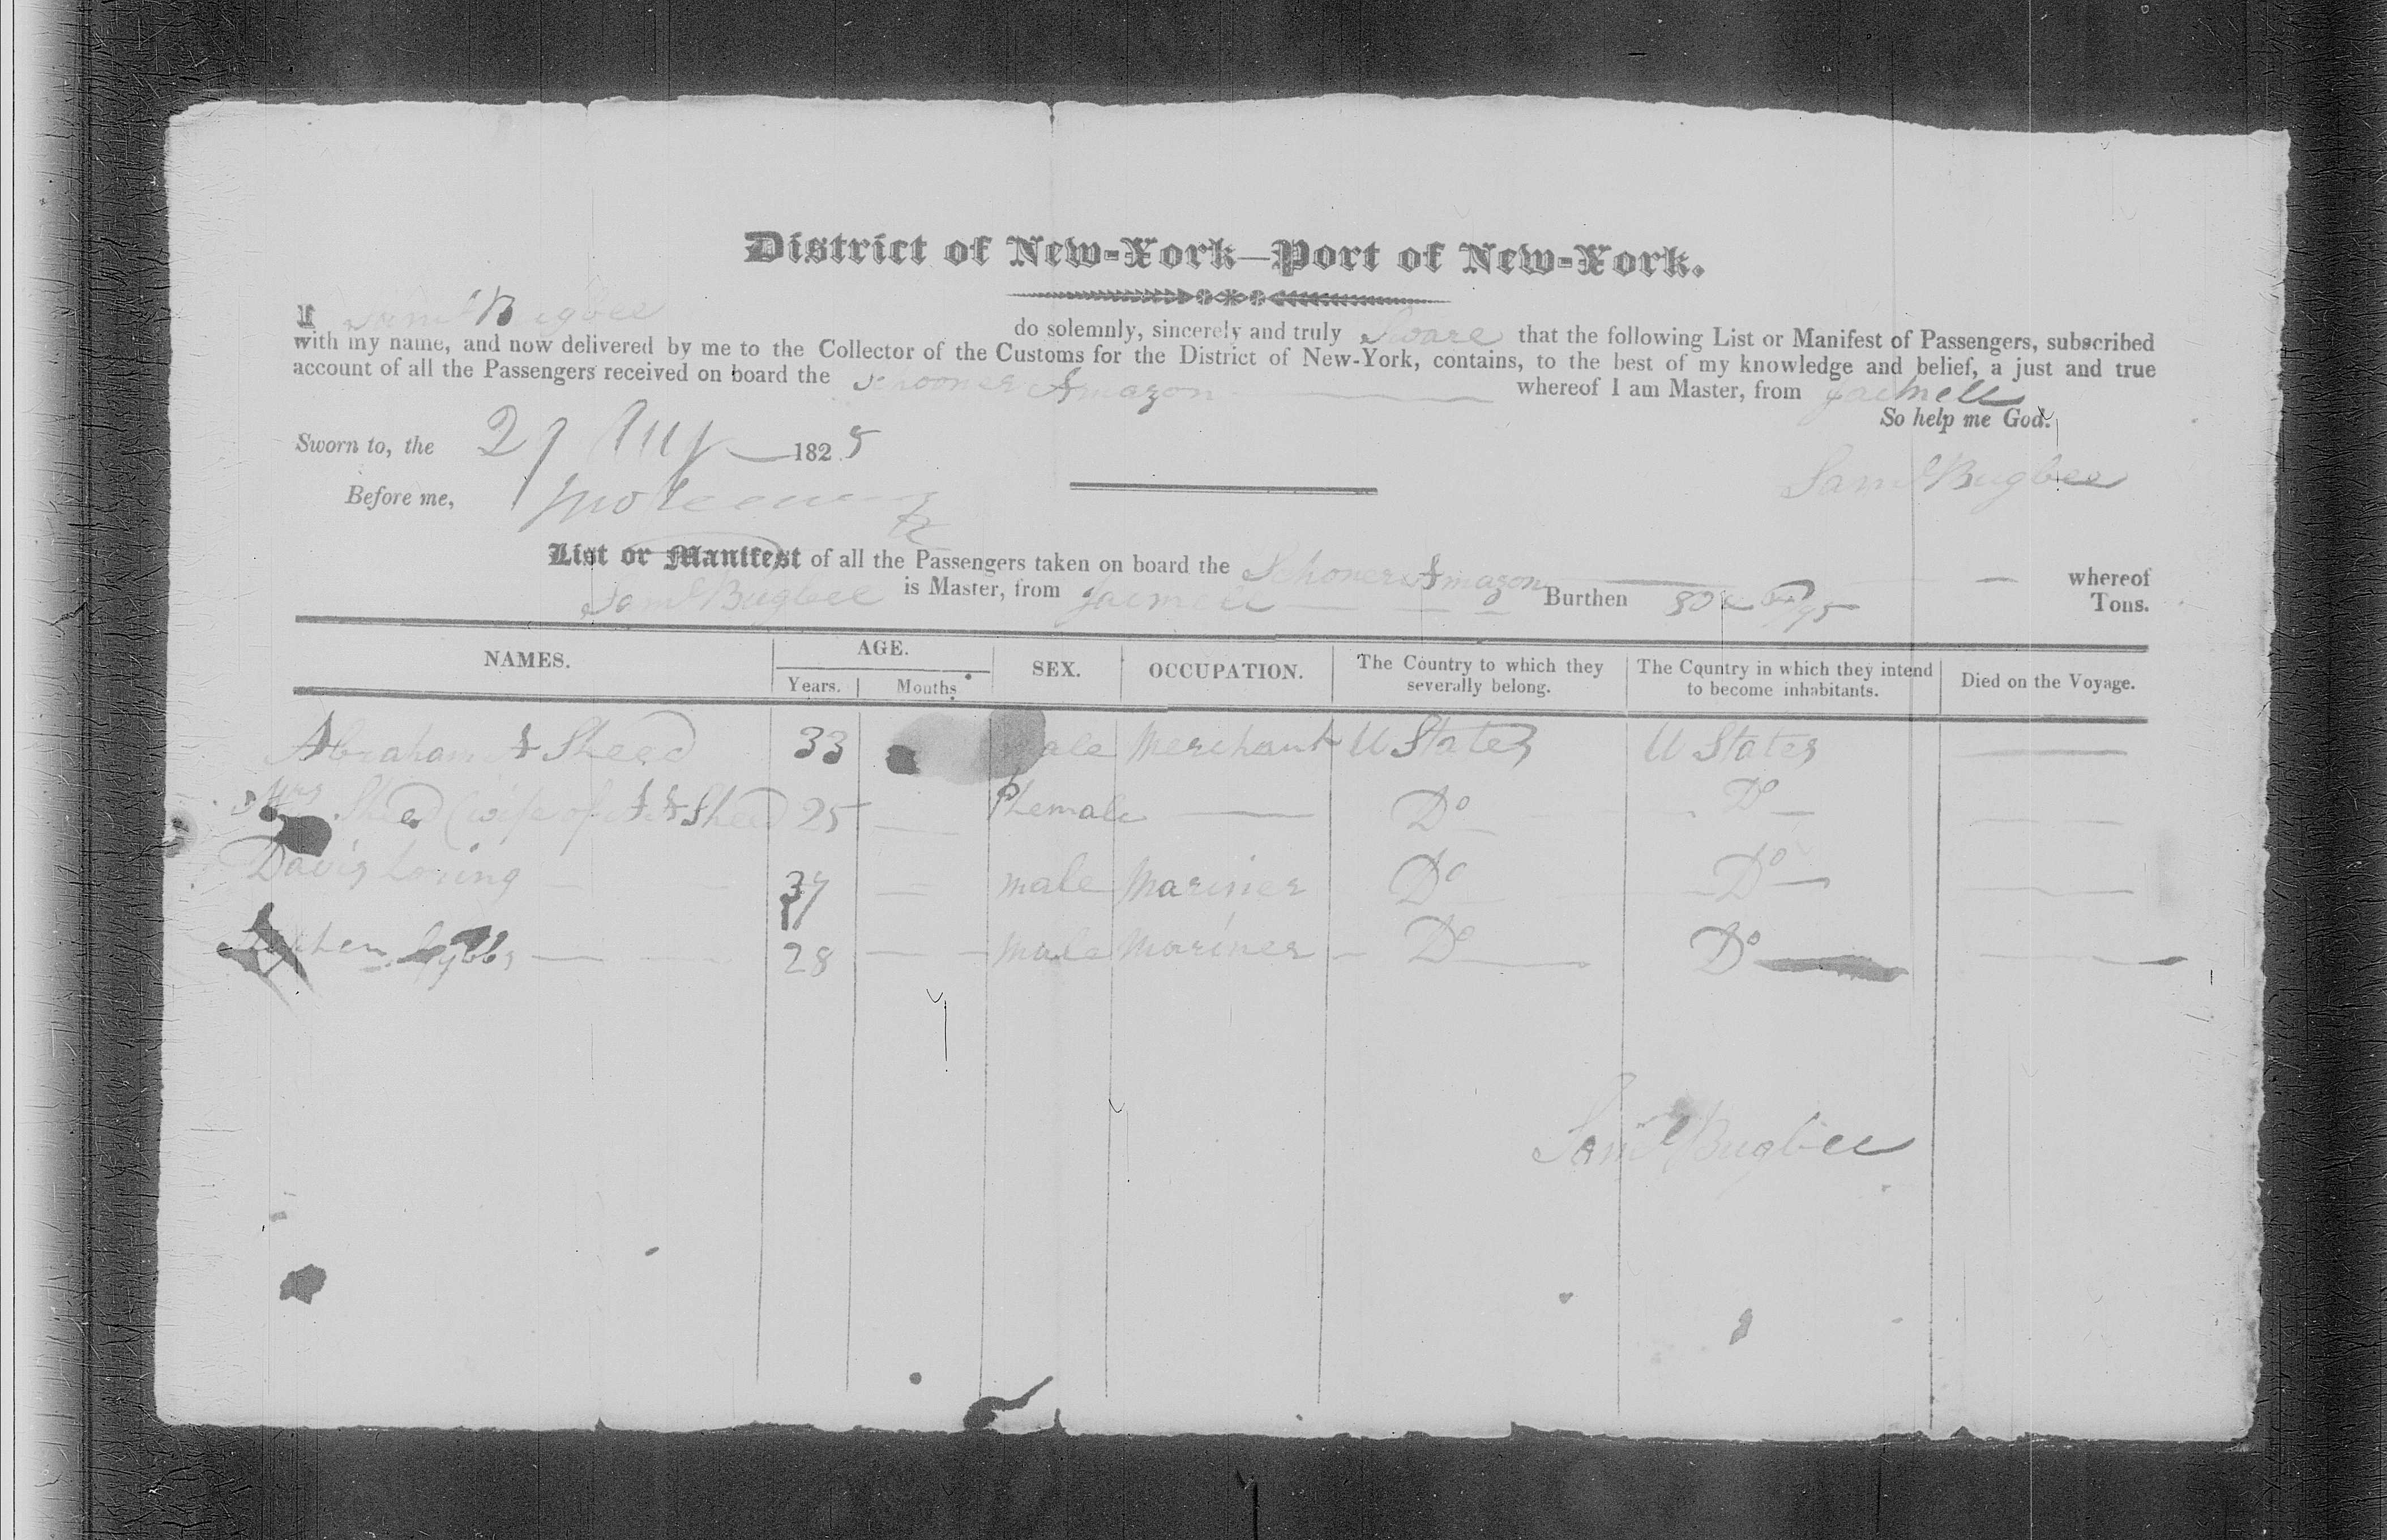 District of New-York—Port of New-York.
I Saml Bugbee do solemnly, sincerely and truly Sware that the following List or Manifest of Passengers, subscribed
with my name, and now delivered by me to the Collector of the Customs for the District of New-York, contains, to the best of my knowledge and belief, a just and true
account of all the Passengers received on board the Schooner Amazon whereof I am Master, from Jacmell
So help me God.
Sworn to, the 27 1825
Saml Bugbee
Before me,
List or Manifest of all the Passengers taken on board the Schoner Amazon whereof
Saml Bugbee is Master, from Jacmell Burthen Tons.
NAMES. AGE. SEX. OCCUPATION. The Country to which they severally belong. The Country in which they intend to become inhabitants. Died on the Voyage.
Years. Months.
Abraham A Sheed 33 male Merchant U States U States —
Mrs Sheed (wife of A A Sheed 25 — Phemale — Do Do —
Davis Loring — 37 — male Mariner Do Do —
— 28 — male Mariner Do Do —
Saml Bugbee